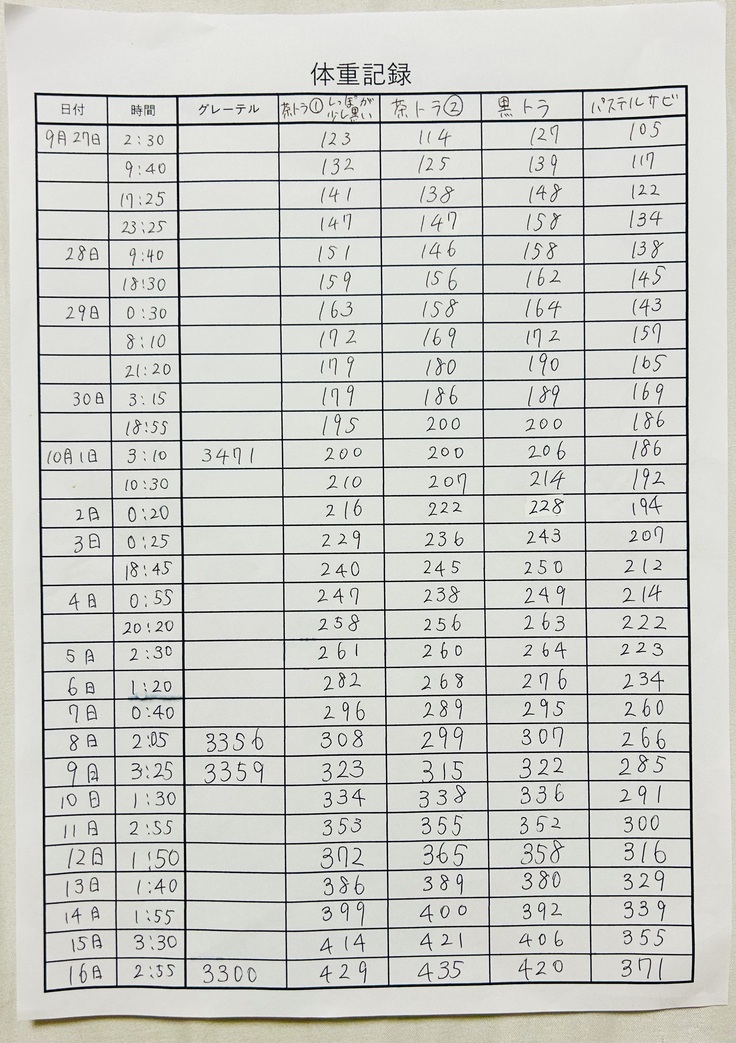 体重記録
日付 時間 グレーテル 茶トラ① しっぽが少し黒い 茶トラ② 黒トラ パステルサビ
9月27日 2:30 123 114 127 105
9:40 132 125 139 117
17:25 141 138 148 122
23:25 147 147 158 134
28日 9:40 151 146 158 138
18:30 159 156 162 145
29日 0:30 163 158 164 143
8:10 172 169 172 157
21:20 179 180 190 165
30日 3:15 179 186 189 169
18:55 195 200 200 186
10月1日 3:10 3471 200 200 206 186
10:30 210 207 214 192
2日 0:20 216 222 228 194
3日 0:25 229 236 243 207
18:45 240 245 250 212
4日 0:55 247 238 249 214
20:20 258 256 263 222
5日 2:30 261 260 264 223
6日 1:20 282 268 276 234
7日 0:40 296 289 295 260
8日 2:05 3356 308 299 307 266
9日 3:25 3359 323 315 322 285
10日 1:30 334 338 336 291
11日 2:55 353 355 352 300
12日 1:50 372 365 358 316
13日 1:40 386 389 380 329
14日 1:55 399 400 392 339
15日 3:30 414 421 406 355
16日 2:55 3300 429 435 420 371